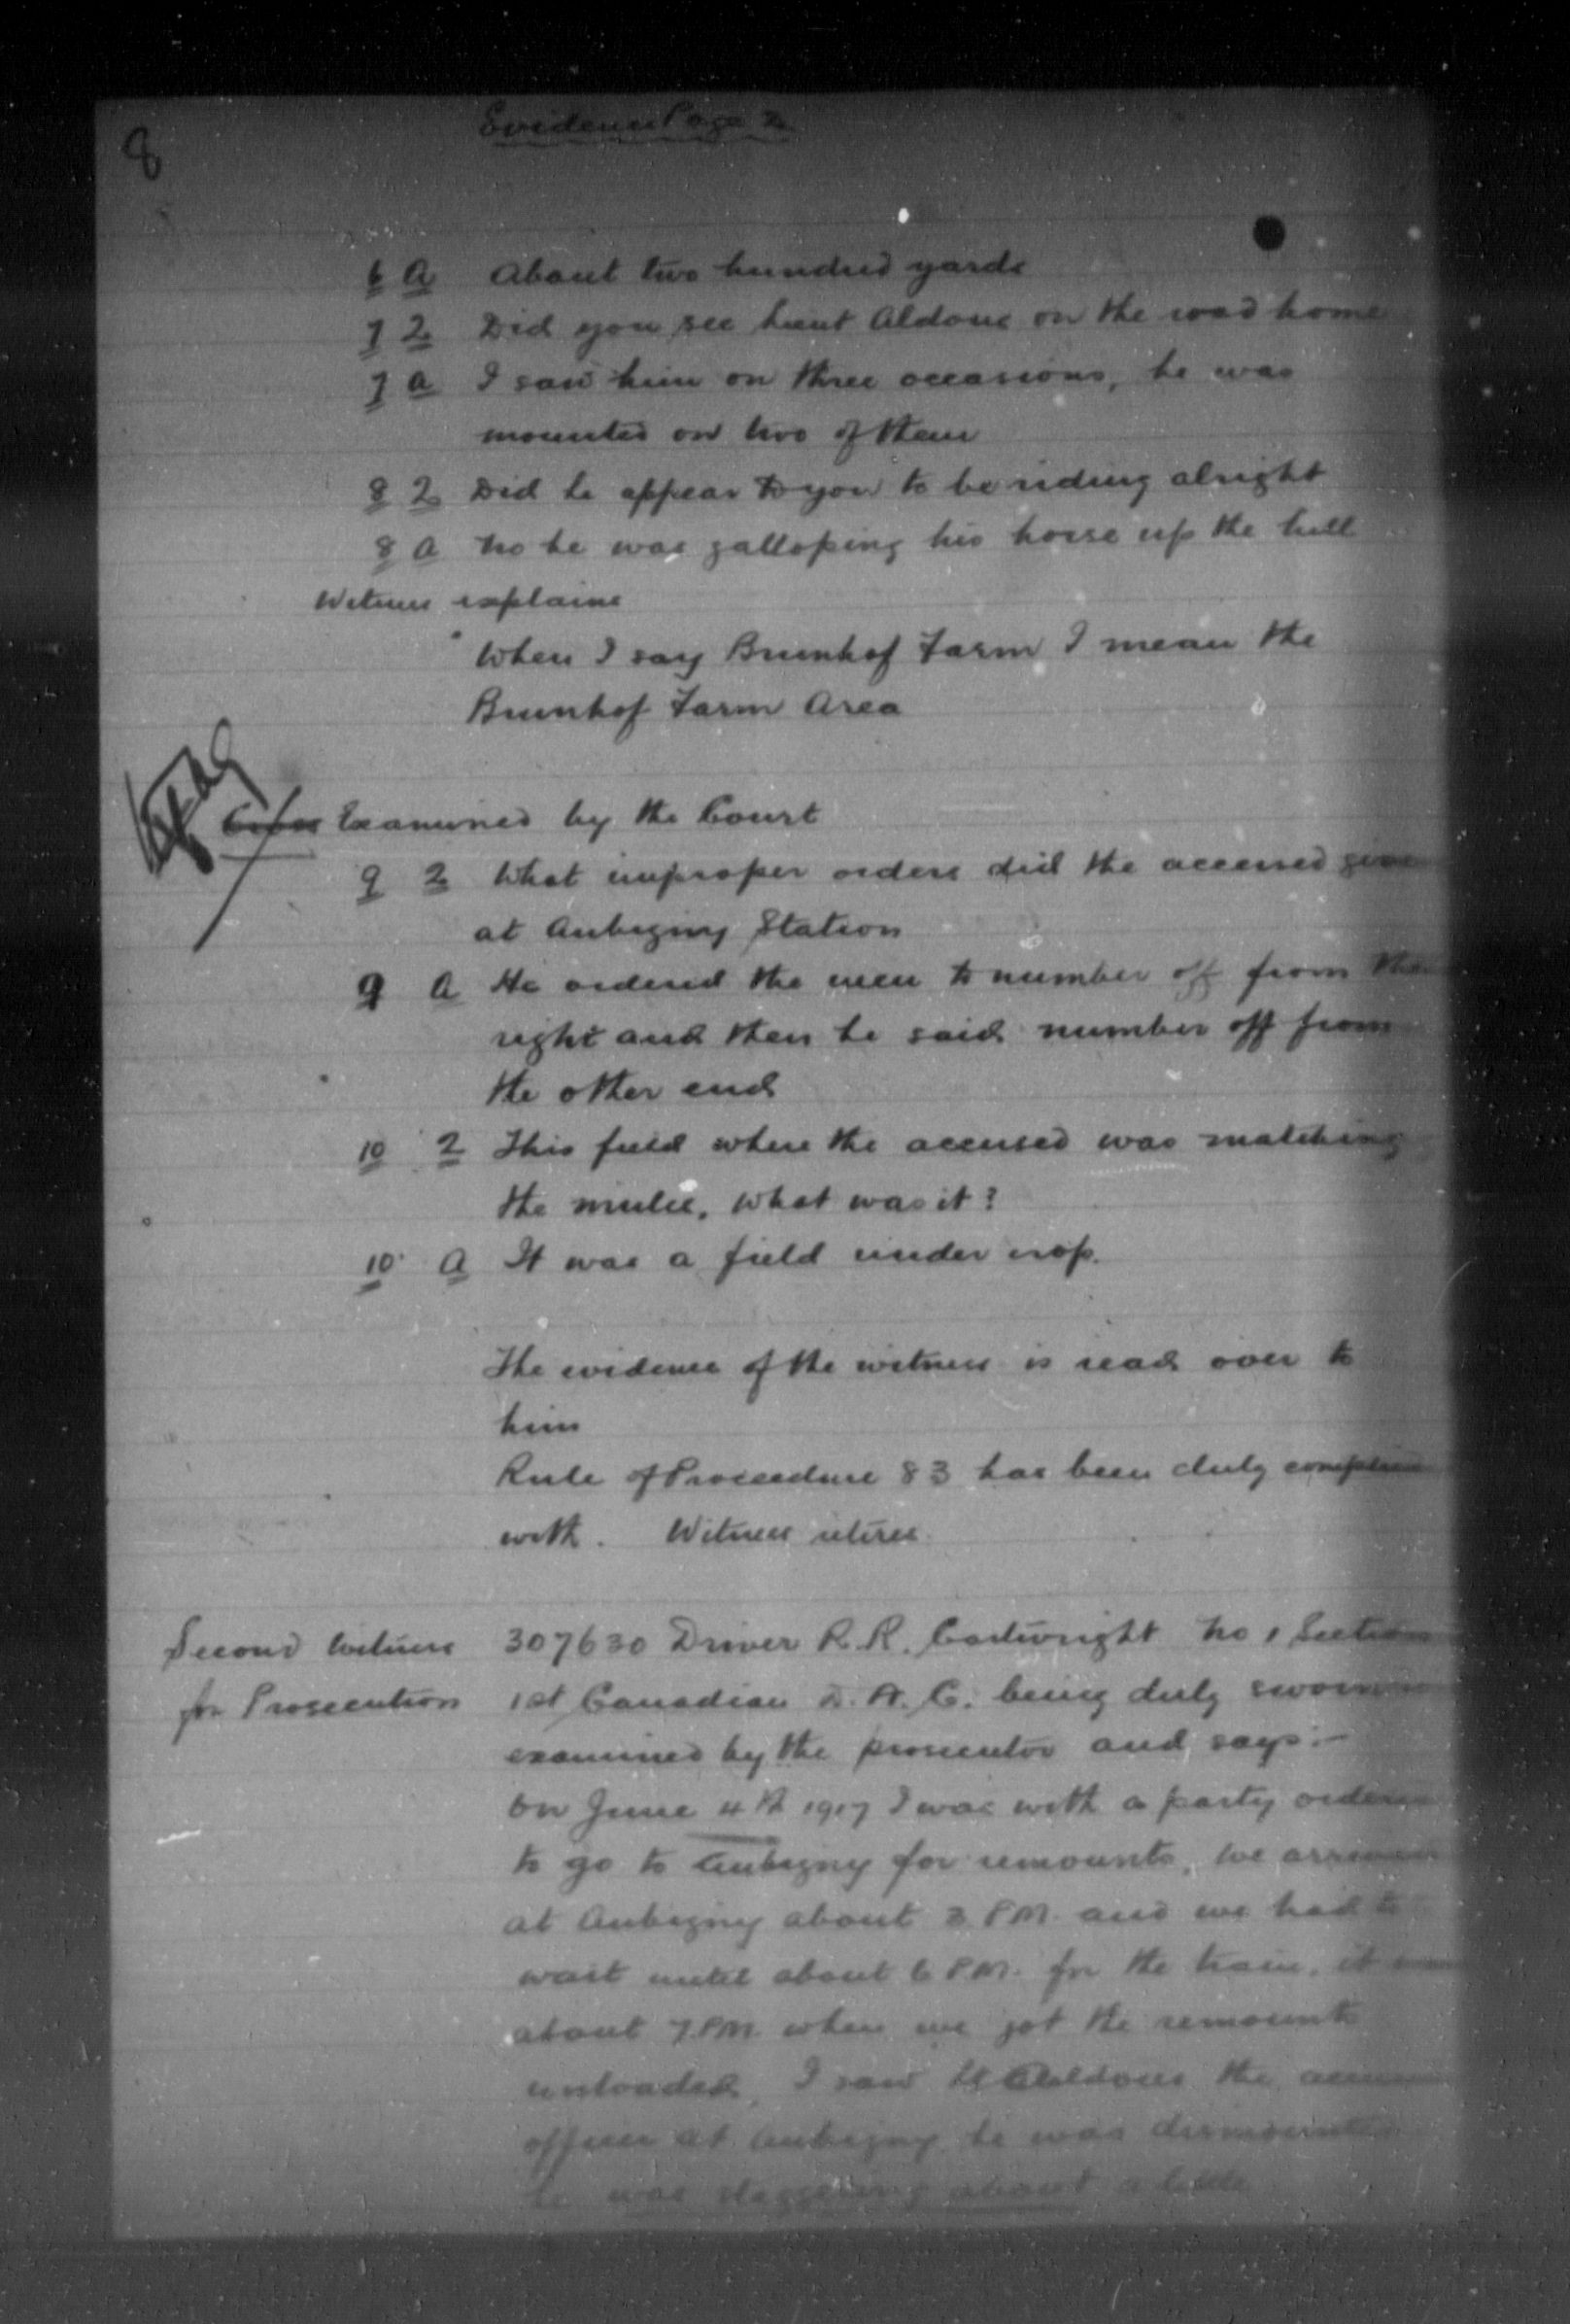 8
Evidence Page 2
6 A About two hundred yards
7 Q Did you see Lieut Aldous on the road home
7 A I saw him on three occasions, he was
mounted on two of them
8 Q Did he appear to you to be riding alright
8 A No he was galloping his horse up the hill
Witness explains
When I say Brunhof Farm I mean the
Brunhof Farm Area
Cross Examined by the Court
9 Q What improper orders did the accused give
at Aubigny Station
9 A He ordered the men to number off from the
right and then he said number off from
the other end
10 Q This field where the accused was
the mules, what was it?
10 A It was a field under crop.
The evidence of the witness is read over to
him
Rule of Proceedure 83 has been duly complied
with. Witness retires
Second Witness 307630 Driver R.R. Cartwright No 1 Section
for Prosecution 1st Canadian D.A.C. being duly sworn
examined by the prosecutor and says:-
On June 4th 1917 I was with a party ordered
to go to Aubigny for remounts, we arrived
at Aubigny about 3 PM. and we had to
wait until about 6 P.M. for the train, it was
about 7 P.M. when we got the remounts
unloaded, I saw Lt Aldous the accused
officer at Aubigny he was dismounted
he was staggering about a little